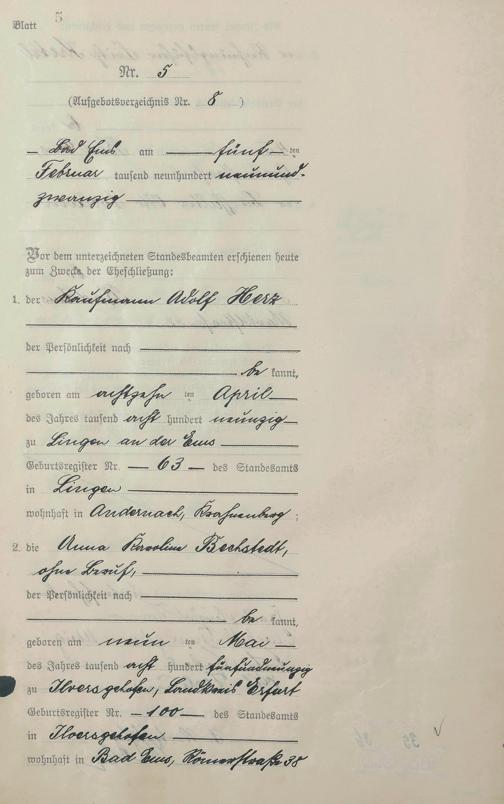 Blatt 5
Nr. 5
(Aufgebotsverzeichnis Nr. 8 )
Bad Ems am fünf ten
Februar tausend neunhundert neunund-
zwanzig
Vor dem unterzeichneten Standesbeamten erschienen heute
zum Zwecke der Eheschließung:
1. der Kaufmann Adolf Herz
der Persönlichkeit nach
be kannt,
geboren am achtzehn ten April
des Jahres tausend acht hundert neunzig
zu Lingen an der Ems
Geburtsregister Nr. 63 des Standesamts
in Lingen
wohnhaft in Andernach, Krahnenberg ;
2. die Anna Karoline Bechstedt,
ohne Beruf,
der Persönlichkeit nach
be kannt,
geboren am neun ten Mai
des Jahres tausend acht hundert fünfundneunzig
zu Ilversgehofen, Landkreis Erfurt
Geburtsregister Nr. 100 des Standesamts
in Ilversgehofen
wohnhaft in Bad Ems, Römerstraße 38